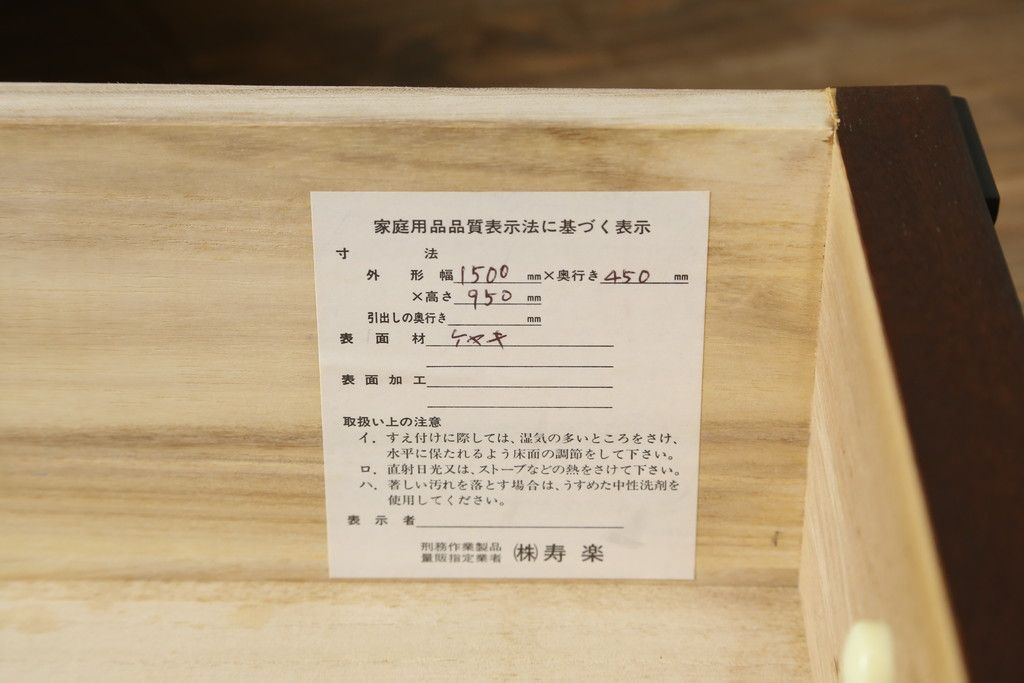 家庭用品品質表示法に基づく表示
寸法
外形幅1500mm×奥行き450mm
×高さ950mm
引出しの奥行きmm
表面材ケヤキ
表面加工
取扱い上の注意
イ．すえ付けに際しては、湿気の多いところをさけ、
水平に保たれるよう床面の調節をして下さい。
ロ．直射日光又は、ストーブなどの熱をさけて下さい。
ハ．著しい汚れを落とす場合は、うすめた中性洗剤を
使用してください。
表示者
刑務作業製品
量販指定業者
㈱寿楽